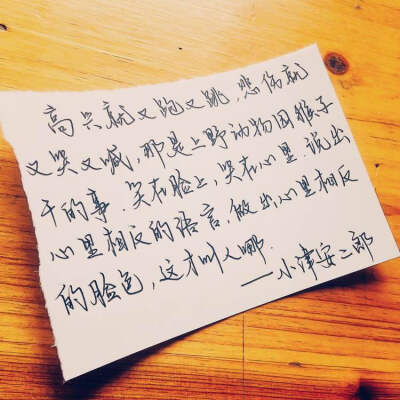 高兴就又跑又跳，悲伤就
又哭又喊，那是上野动物园猴子
干的事．笑在脸上，哭在心里．说出
心里相反的语言，做出心里相反
的脸色，这才叫人哪．
——小津安二郎